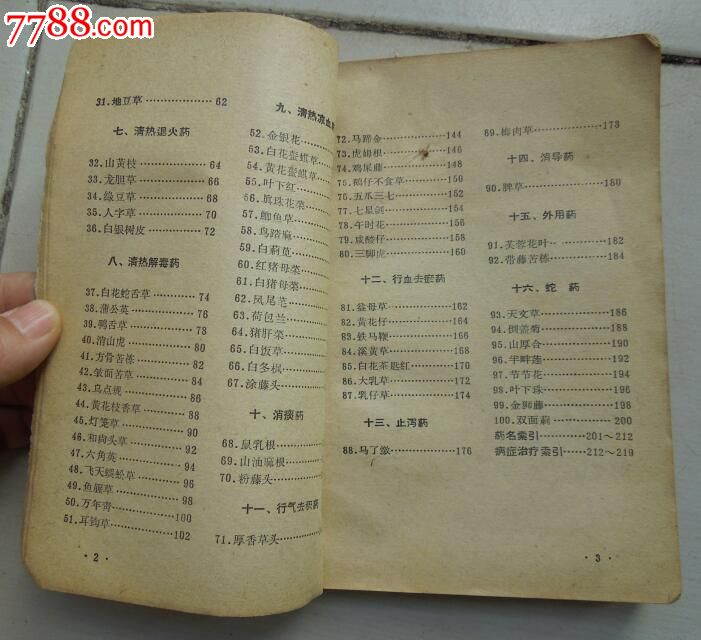 7788.com
31.地豆草………62
七、清热退火药
32.山黄枝………64
33.龙胆草………66
34.绿豆草………68
35.人字草………70
36.白银树皮………72
八、清热解毒药
37.白花蛇舌草………74
38.蒲公英………76
39.鸭舌草………78
40.清山虎………80
41.方骨苦楝………82
42.皱面苦草………84
43.乌点规………86
44.黄花枝香草………88
45.灯笼草………90
46.和尚头草………92
47.六角英………94
48.飞天蜈蚣草………96
49.鱼腥草………98
50.万年青………100
51.耳钩草………102
·2·
九、清热凉血
52.金银花………
53.白花蜇蜞草………
54.黄花蜇蜞草………
55.叶下红………
56.旗珠花菜………
57.鲫鱼草………
58.鸟踏麻………
59.白莿苋………
60.红猪母菜………
61.白猪母菜………
62.凤尾芼………
63.荷包兰………
64.猪肝菜………
65.白饭草………
66.白冬枫………
67.涂藤头………
十、消痰药
68.鼠乳根………
69.山油麻根………
70.粉藤头………
十一、行气去积药
71.厚香草头………
72.马蹄金………144
73.虎姆根………146
74.鸡屎藤………148
75.鹅仔不食草………150
76.五爪三七………152
77.七星剑………154
78.午时花………156
79.咸酸仔………158
80.三脚虎………160
十二、行血去瘀药
81.益母草………162
82.黄花仔………164
83.铁马鞭………166
84.溪黄草………168
85.白花茶匙红………170
86.大乳草………172
87.乳仔草………174
十三、止泻药
88.马了漦………176
89.梅肉草………178
十四、消导药
90.脾草………180
十五、外用药
91.芙蓉花叶………182
92.带藤苦楝………184
十六、蛇 药
93.天文草………186
94.倒盖菊………188
95.山厚合………190
96.半畔莲………192
97.节节花………194
98.叶下珠………196
99.金狮藤………198
100.双面莿………200
药名索引………201～212
病症治疗索引………212～219
·3·